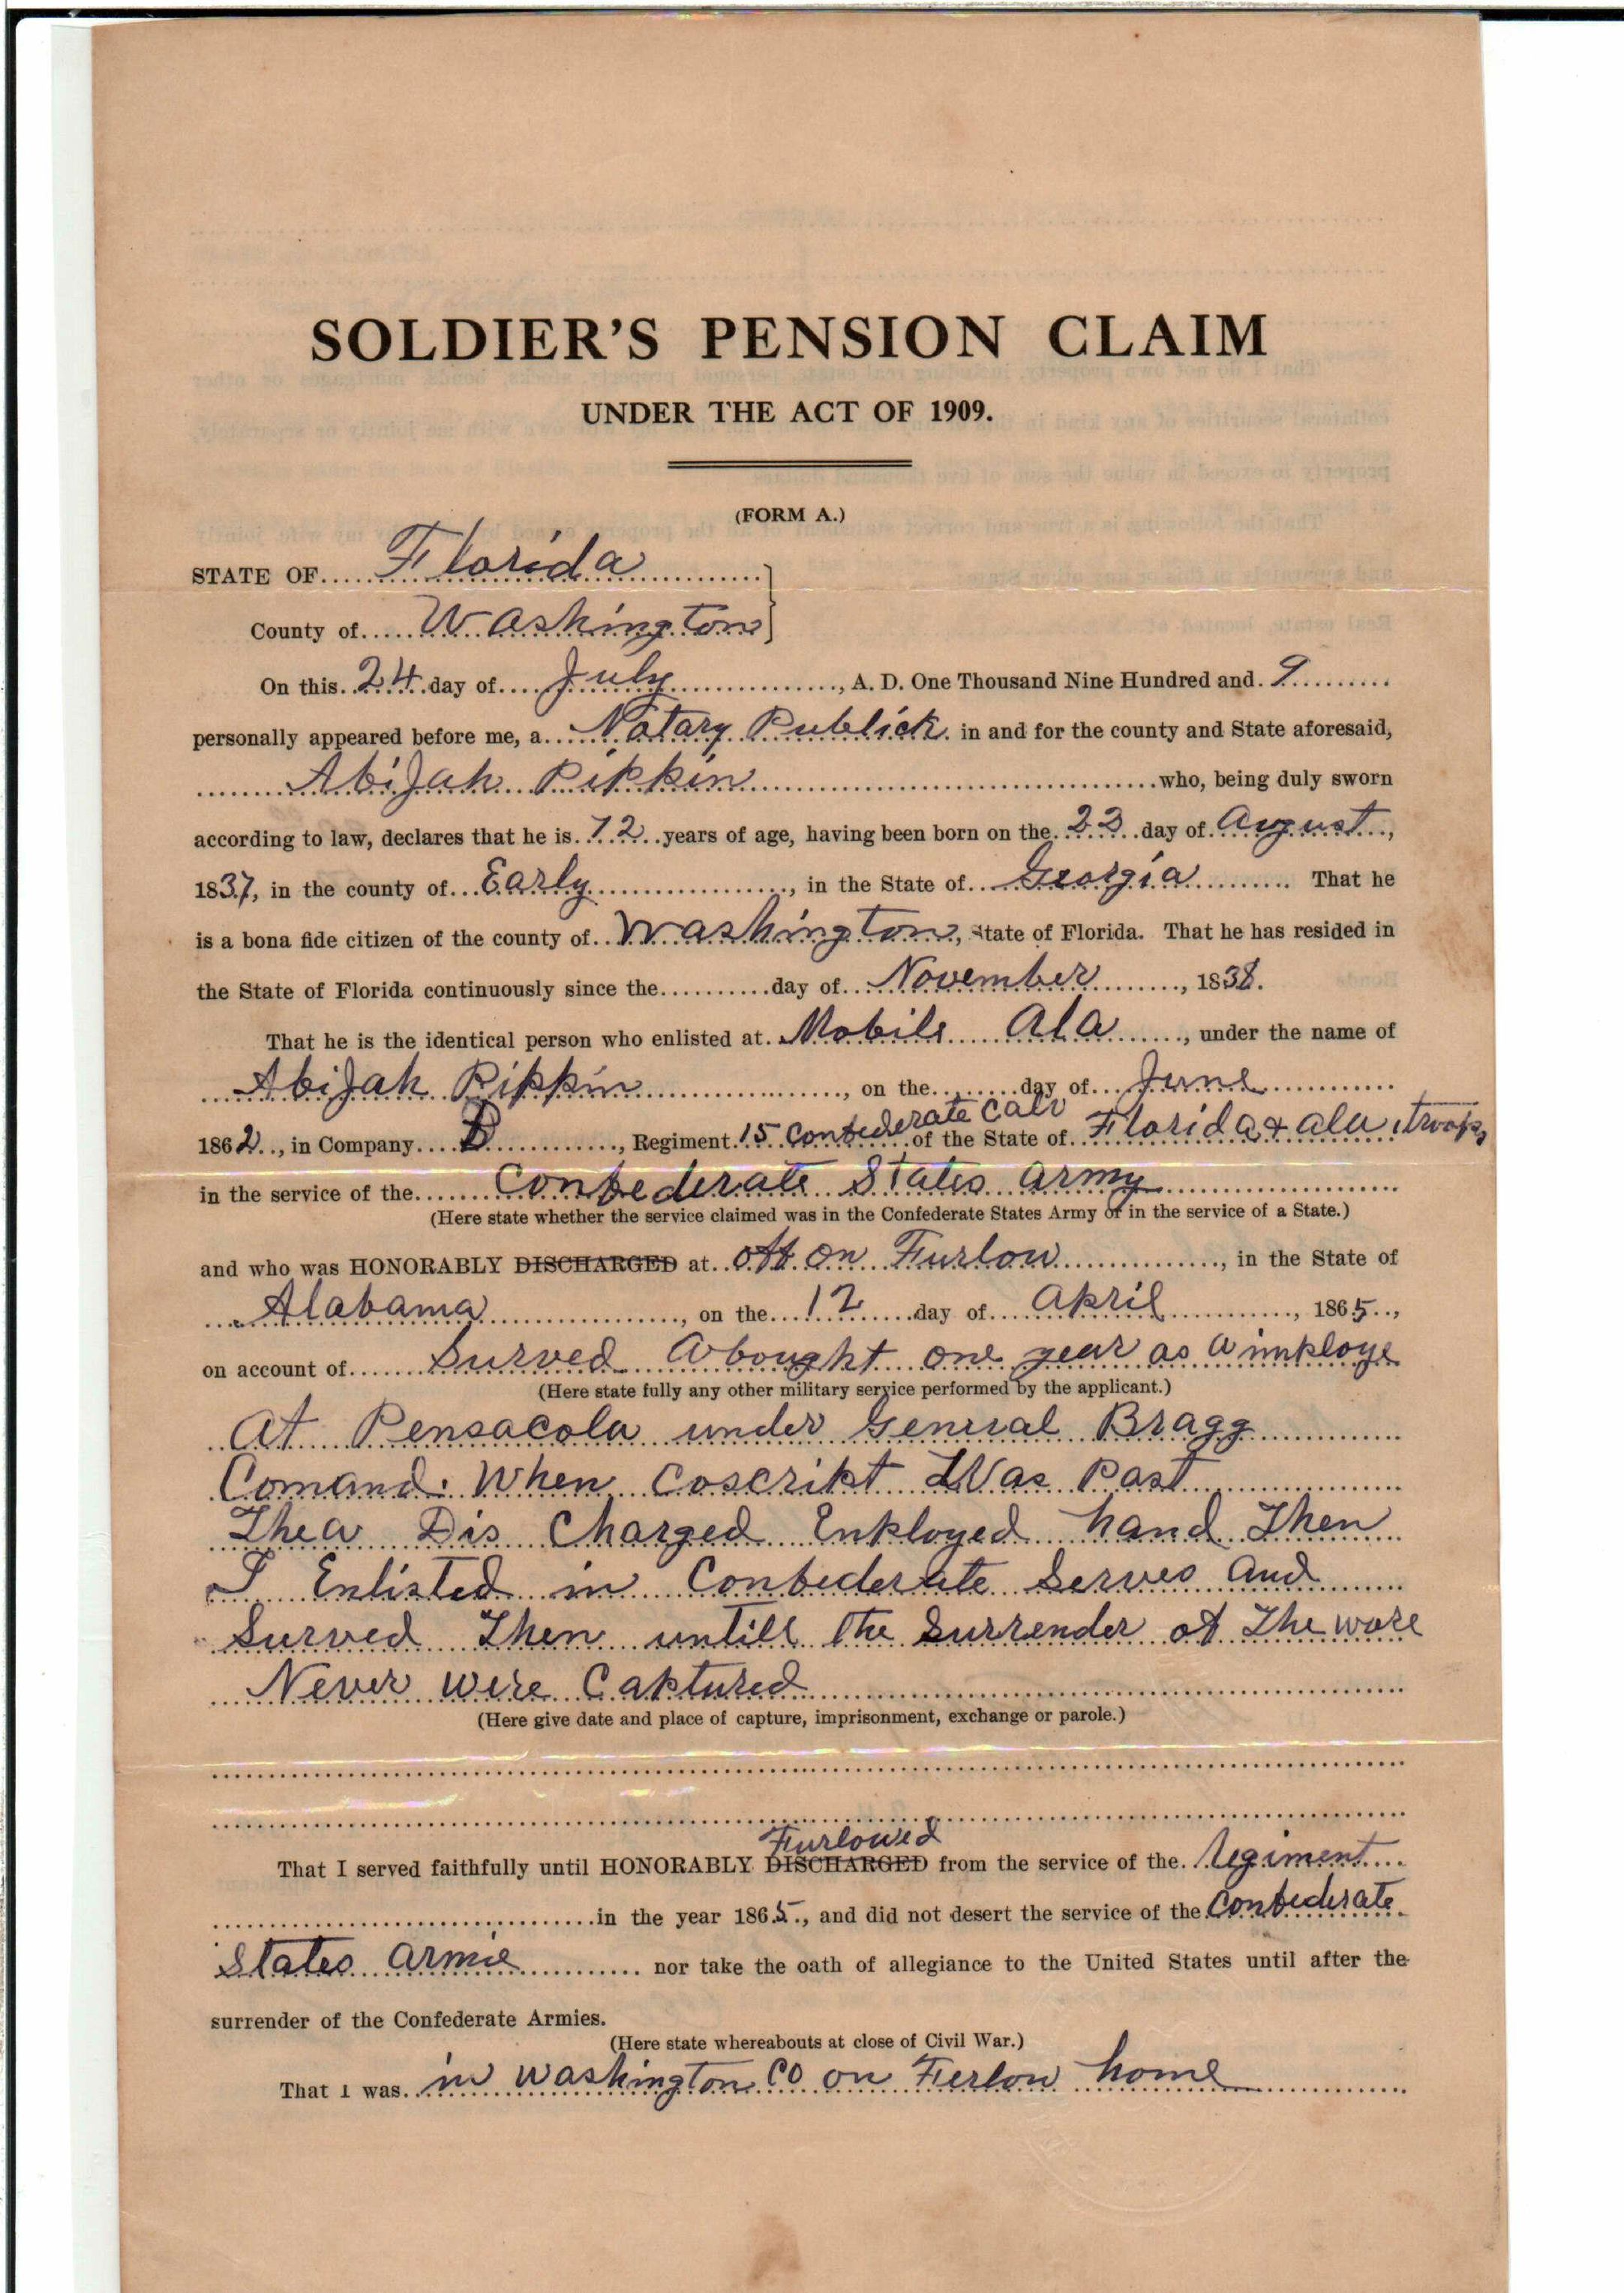 SOLDIER'S PENSION CLAIM
UNDER THE ACT OF 1909.
(FORM A.)
STATE OF Florida
County of Washington
On this 24 day of July, A. D. One Thousand Nine Hundred and 9
personally appeared before me, a Notary Publick in and for the county and State aforesaid,
Abijah Pippin who, being duly sworn
according to law, declares that he is 72 years of age, having been born on the 23 day of August,
1837, in the county of Early, in the State of Georgia That he
is a bona fide citizen of the county of Washington, State of Florida. That he has resided in
the State of Florida continuously since the day of November, 1838.
That he is the identical person who enlisted at Mobile Ala, under the name of
Abijah Pippin, on the day of June
1862, in Company B, Regiment 15 Confederate Calv of the State of Florida & ala troops
in the service of the Confederate States army
(Here state whether the service claimed was in the Confederate States Army or in the service of a State.)
and who was HONORABLY DISCHARGED at off on Furlow, in the State of
Alabama, on the 12 day of April, 1865,
on account of Surved Abought one year as a imploye
(Here state fully any other military service performed by the applicant.)
At Pensacola under General Bragg
Comand. When Coscript Was Past
Thea Dis Charged Enployed hand Then
I Enlisted in Confederate Serves and
Surved Then untill the Surrender of The ware
Never were Captured
(Here give date and place of capture, imprisonment, exchange or parole.)
Furlowed
That I served faithfully until HONORABLY DISCHARGED from the service of the Regiment
in the year 1865, and did not desert the service of the Confederate
States Armie nor take the oath of allegiance to the United States until after the
surrender of the Confederate Armies.
(Here state whereabouts at close of Civil War.)
That I was in Washington Co on Furlow home